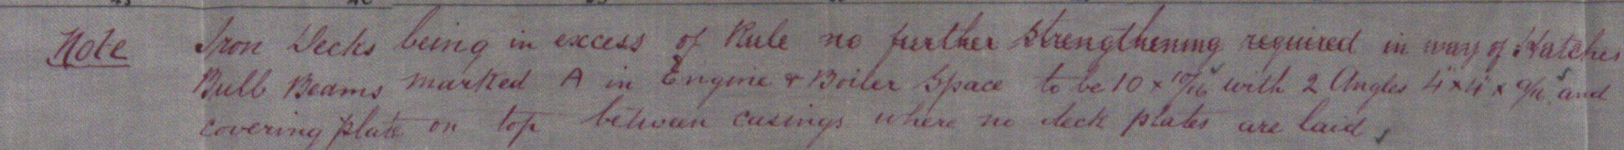 Note Iron Decks being in excess of Rule no further strengthening required in way of Hatches
Bulb Beams marked A in Engine & Boiler Space to be 10 × 10/16 with 2 Angles 4 × 4 × 9/16 and
covering plate on top between casings where no deck plates are laid,